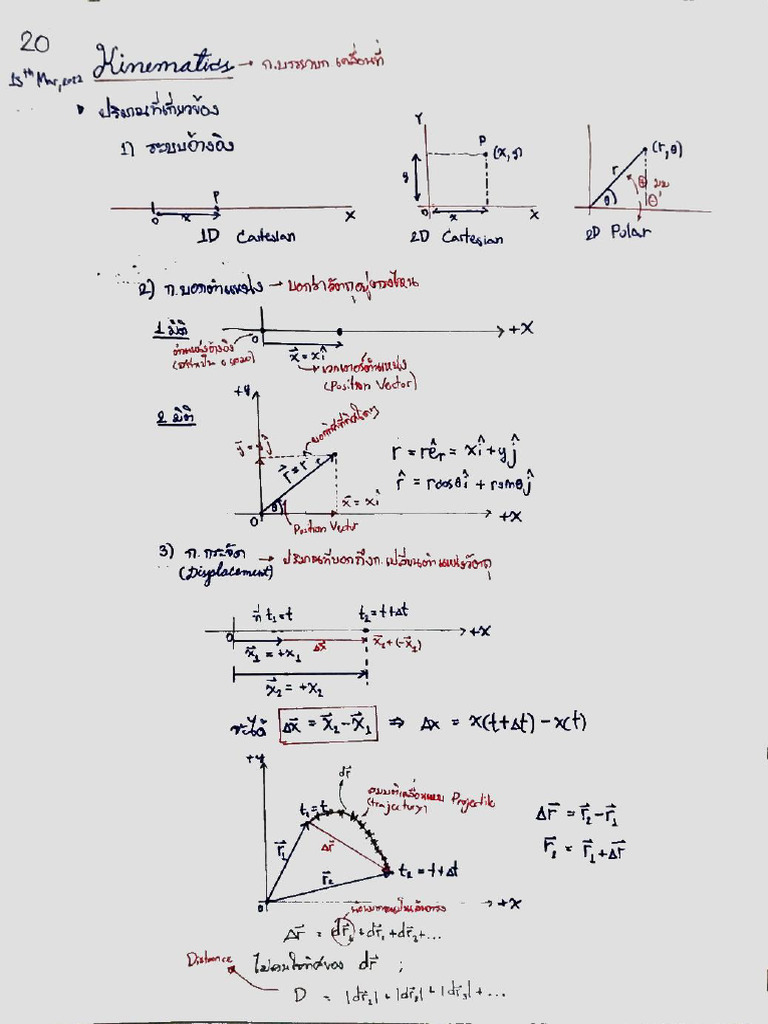 20
13th Mar, 2022
Kinematics → ก.บรรยายก.เคลื่อนที่
ปริมาณที่เกี่ยวข้อง
1) ระบบอ้างอิง
P
0
x
X
1D Cartesian
Y
P
(x, y)
y
0
x
X
2D Cartesian
r
(r, θ)
θ
θ มุม
θ'
2D Polar
2) ก.บอกตำแหน่ง → บอกว่าวัตถุอยู่ตรงไหน
1 มิติ
0
+X
ตำแหน่งอ้างอิง
x⃗ = xî
เวกเตอร์ตำแหน่ง
(Position Vector)
2 มิติ
+y
y⃗ = yĵ
x⃗ = xî
θ
0
Position Vector
+X
r = rêr = xî + yĵ
r̂ = rcosθî + rsinθĵ
3) ก.กระจัด → ปริมาณที่บอกถึงก.เปลี่ยนตำแหน่งวัตถุ
(Displacement)
ที่ t₁ = t
t₂ = t+Δt
0
+X
x⃗₁ = +x₁
Δx⃗
x⃗₂+(-x⃗₁)
x⃗₂ = +x₂
จะได้ Δx⃗ = x⃗₂ - x⃗₁ ⇒ Δx = x(t+Δt) - x(t)
+y
dr⃗
สมมติเคลื่อนแบบ Projectile
(trajectory)
r⃗₁
Δr⃗
r⃗₂
t₂ = t+Δt
0
+X
Δr⃗ = r⃗₂ - r⃗₁
r⃗₂ = r⃗₁ + Δr⃗
Δr⃗ = dr⃗₁ + dr⃗₂ + dr⃗₃ + ...
Distance
ไม่สนใจทิศของ dr⃗ ;
D = |dr⃗₁| + |dr⃗₂| + |dr⃗₃| + ...